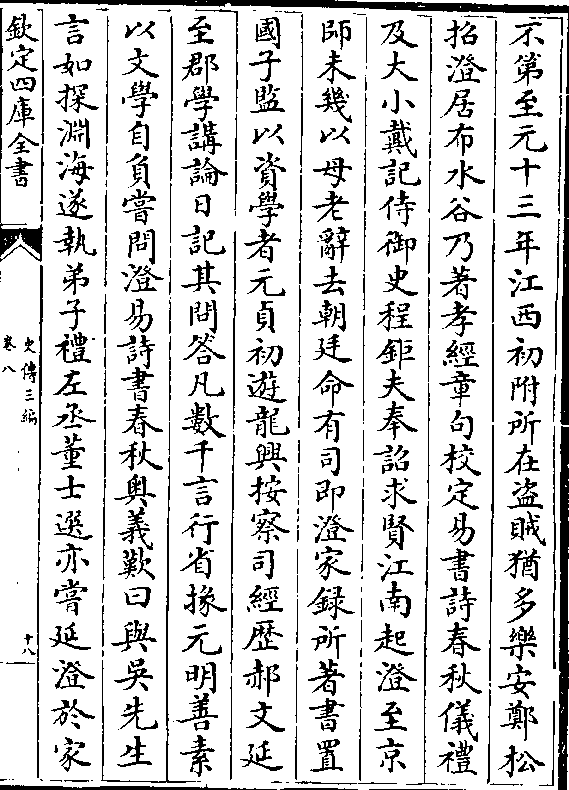 不第至元十三年江西初附所在盜賊猶多樂安鄭松
招澄居布水谷乃著孝經章句校定易書詩春秋儀禮
及大小戴記侍御史程鉅夫奉詔求賢江南起澄至京
師未幾以母老辭去朝廷命有司即澄家録所著書置
國子監以資學者元貞初遊龍興按察司經歴郝文延
至郡學講論日記其問答凡數千言行省掾元明善素
以文學自負嘗問澄易詩書春秋奥義歎曰與吳先生
言如探淵海遂執弟子禮左丞董士選亦嘗延澄於家
欽定四庫全書
史傳三編
卷八
十八